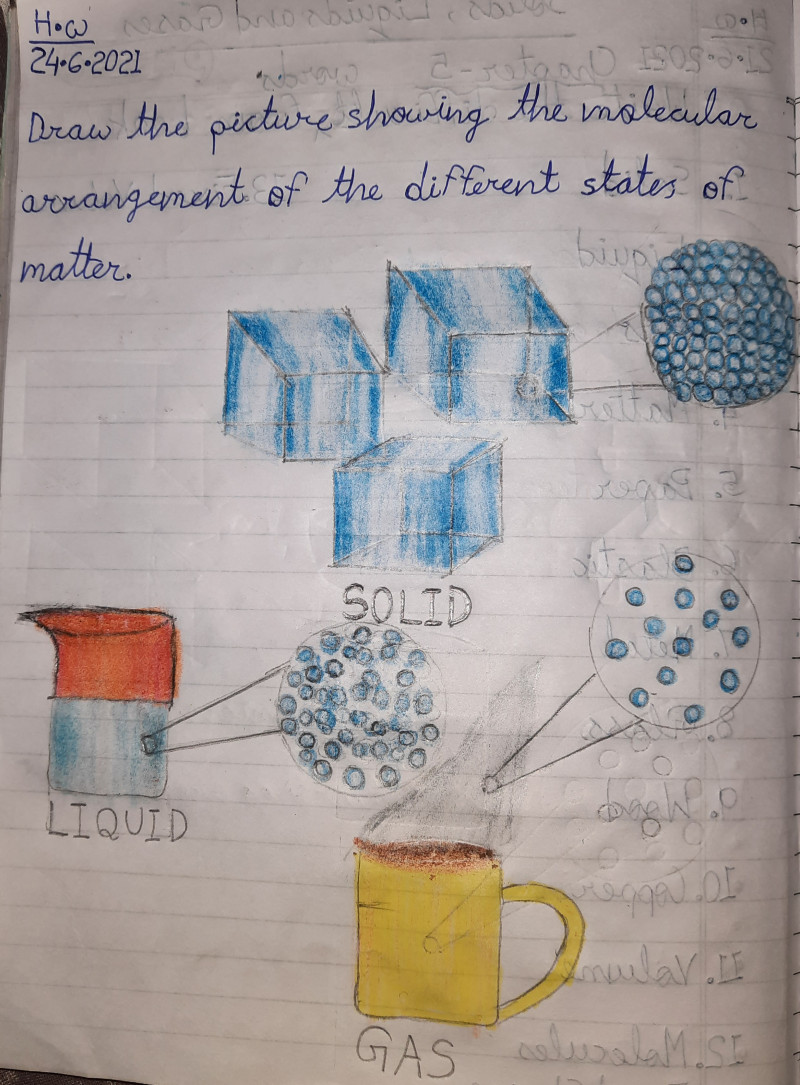 H.W
24.6.2021
Draw the picture showing the molecular
arrangement of the different states of
matter.
SOLID
LIQUID
GAS